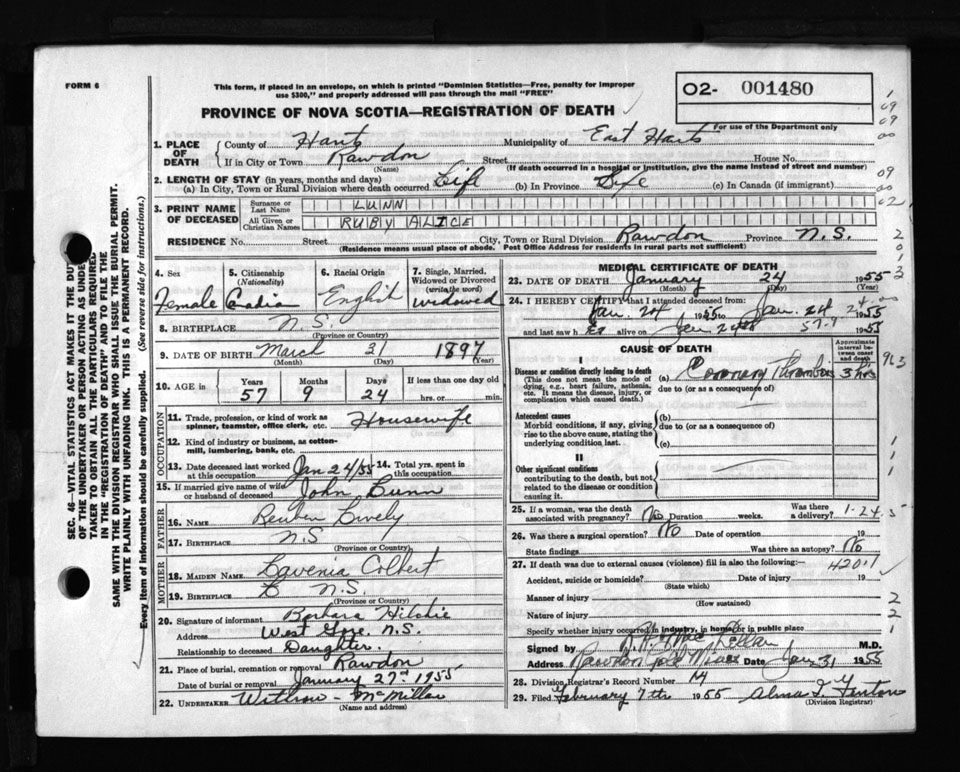 FORM 6
This form, if placed in an envelope, on which is printed "Dominion Statistics—Free, penalty for improper
use $300," and properly addressed will pass through the mail "FREE"
PROVINCE OF NOVA SCOTIA—REGISTRATION OF DEATH
O2- 001480
For use of the Department only
1. PLACE OF DEATH
County of Hants Municipality of East Hants
If in City or Town Rawdon Street House No.
(Name) (If death occurred in a hospital or institution, give the name instead of street and number)
2. LENGTH OF STAY (in years, months and days)
(a) In City, Town or Rural Division where death occurred Life (b) In Province Life (c) In Canada (if immigrant)
3. PRINT NAME OF DECEASED
Surname or Last Name LUNN
All Given or Christian Names RUBY ALICE
RESIDENCE No. Street City, Town or Rural Division Rawdon Province N.S.
(Residence means usual place of abode. Post Office Address for residents in rural parts not sufficient)
4. Sex Female
5. Citizenship (Nationality) Canadia
6. Racial Origin English
7. Single, Married, Widowed or Divorced (write the word) widowed
8. BIRTHPLACE N.S.
(Province or Country)
9. DATE OF BIRTH March 31 1897
(Month) (Day) (Year)
10. AGE in Years Months Days If less than one day old
57 9 24 hrs. or min.
OCCUPATION
11. Trade, profession, or kind of work as spinner, teamster, office clerk, etc. Housewife
12. Kind of industry or business, as cotton-mill, lumbering, bank, etc.
13. Date deceased last worked at this occupation Jan 24/55 14. Total yrs. spent in this occupation
15. If married give name of wife or husband of deceased John Lunn
FATHER
16. NAME Reuben Lively
17. BIRTHPLACE N.S
(Province or Country)
MOTHER
18. MAIDEN NAME Lavenia Colbert
19. BIRTHPLACE N.S.
(Province or Country)
20. Signature of informant Barbara Hitchie
Address West Gore. N.S.
Relationship to deceased Daughter.
21. Place of burial, cremation or removal Rawdon
Date of burial or removal January 27th 1955
22. UNDERTAKER Withrow - McMillan
(Name and address)
MEDICAL CERTIFICATE OF DEATH
23. DATE OF DEATH January 24 1955
(Month) (Day) (Year)
24. I HEREBY CERTIFY that I attended deceased from:
Jan. 24 1955 to Jan. 24 1955
and last saw h er alive on Jan 24th 1955
CAUSE OF DEATH
Approximate interval between onset and death
I
Disease or condition directly leading to death (a) Coronary Thrombosis 3 hrs
(This does not mean the mode of dying, e.g., heart failure, asthenia, etc. It means the disease, injury, or complication which caused death.)
due to (or as a consequence of)
Antecedent causes (b)
Morbid conditions, if any, giving rise to the above cause, stating the underlying condition last.
due to (or as a consequence of)
(c)
II
Other significant conditions
contributing to the death, but not related to the disease or condition causing it.
25. If a woman, was the death associated with pregnancy? No Duration weeks. Was there a delivery? 1-24-5
26. Was there a surgical operation? No Date of operation 19
State findings Was there an autopsy? No
27. If death was due to external causes (violence) fill in also the following:— 4201
Accident, suicide or homicide? Date of injury 19
(State which)
Manner of injury
(How sustained)
Nature of injury
Specify whether injury occurred in industry, in home, or in public place
Signed by M.D.
Address Date Jan 31 1955
28. Division Registrar's Record Number 14
29. Filed February 7th 1955 Alma I. Fenton
(Division Registrar)
SEC. 46—VITAL STATISTICS ACT MAKES IT THE DUTY
OF THE UNDERTAKER OR PERSON ACTING AS UNDER-
TAKER TO OBTAIN ALL THE PARTICULARS REQUIRED
IN THE "REGISTRATION OF DEATH" AND TO FILE THE
SAME WITH THE DIVISION REGISTRAR WHO SHALL ISSUE THE BURIAL PERMIT.
WRITE PLAINLY WITH UNFADING INK. THIS IS A PERMANENT RECORD.
Every item of information should be carefully supplied. (See reverse side for instructions.)